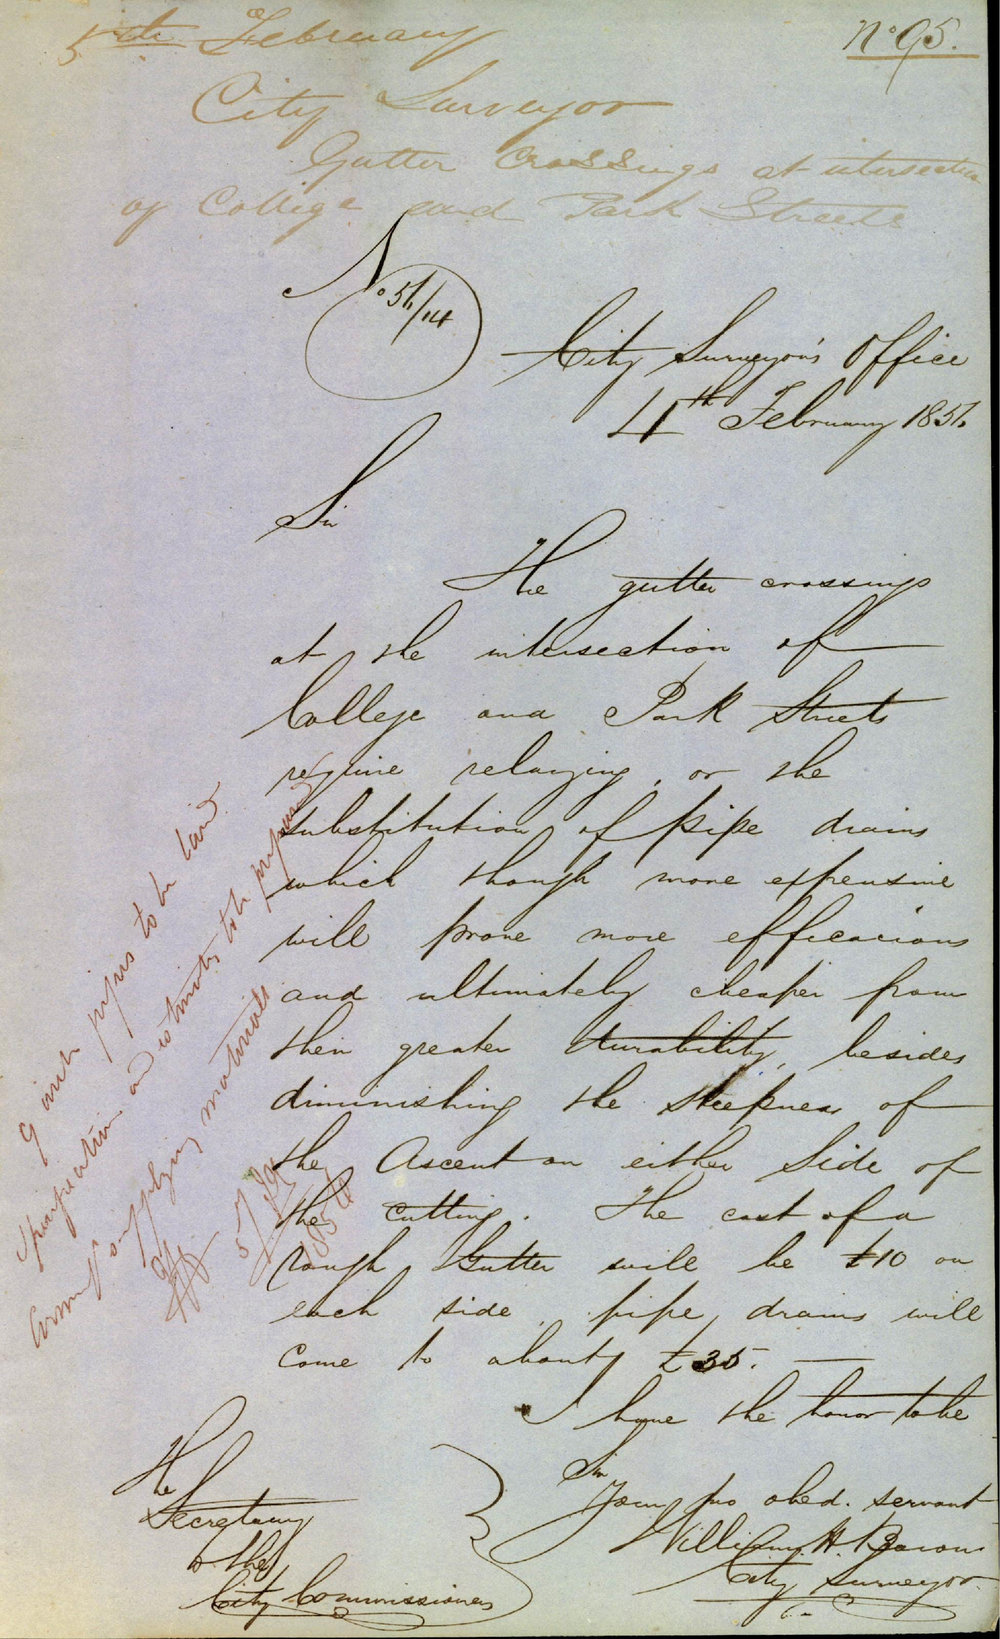 5th February
No 95.
City Surveyor
Gutter Crossings at intersection
of College and Park Streets
No 56/114
City Surveyor's Office
4th February 1856
Sir
The gutter crossings
at the intersection of
College and Park Streets
require relaying, or the
substitution of pipe drains
which though more expensive
will prove more efficacious
and ultimately cheaper from
their greater durability, besides
diminishing the steepness of
the Ascent on either Side of
the cutting. The cost of a
rough Gutter will be £10 on
each side, pipe drains will
come to about £35.
I have the honor to be
Sir
Your mo obed. servant
William H.
City Surveyor
The
Secretary
to the
City Commissioners
9 inch pipes to be laid
Specification and estimates to be prepared
supplying materials
5/2/56
1856